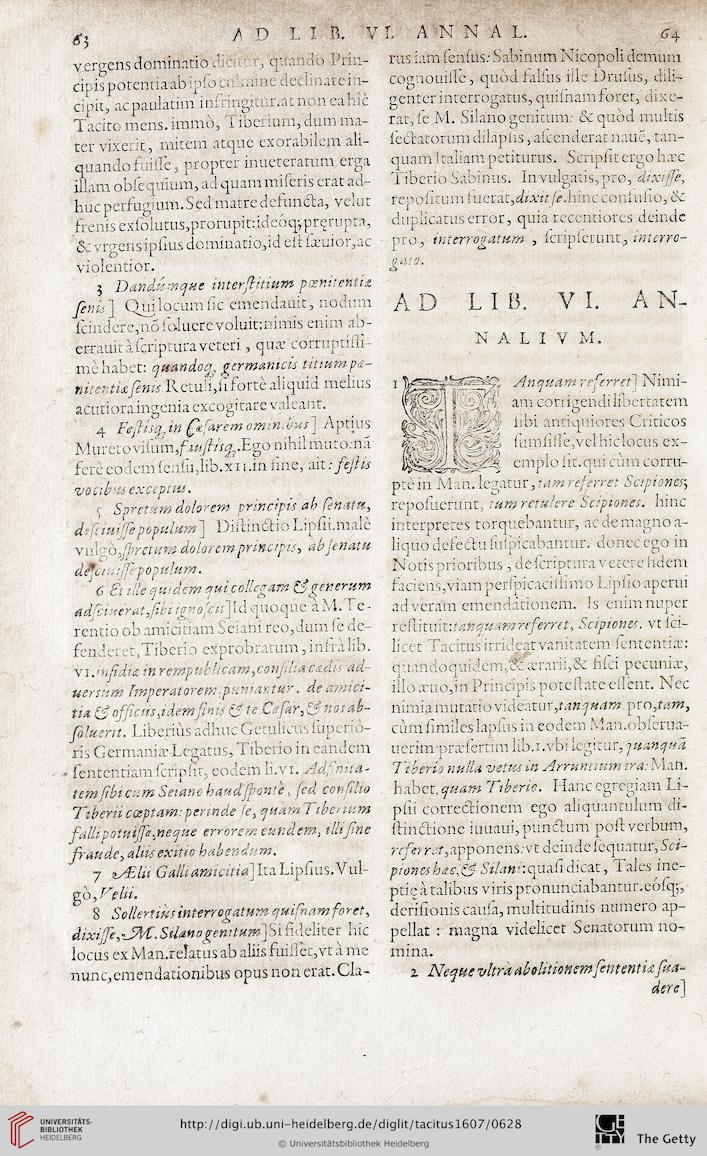 63 AD LIB. VI. ANNAL. 64
vergens dominatio dicitur, quando Prin-
cipis potentia ab ipso culmine declinare in-
cipit, ac paulatim infringitur. at non ea hîc
Tacito mens. immò, Tiberium, dum ma-
ter vixerit, mitem atque exorabilem ali-
quando fuisse, propter inueteratum erga
illam obsequium, ad quam miseris erat ad-
huc perfugium. Sed matre defuncta, velut
frenis exsolutus, prorupit: ideóq; prerupta,
& vrgens ipsius dominatio, id est sæuior, ac
violentior.
3 Dandúmque interstitium pœnitentiæ
senis] Qui locum sic emendauit, nodum
scindere, nõ soluere voluit: nimis enim ab-
errauit à scriptura veteri, quæ corruptissi-
mè habet: quandoq; germanicis titium pæ-
nitentiæ senis. Retuli, si fortè aliquid melius
acutiora ingenia excogitare valeant.
4 Festisq; in Cæsarem ominibus] Aptius
Mureto visum, faustisq;. Ego nihil muto: nã
ferè eodem sensu, lib. XII. in fine, ait: festis
vocibus exceptus.
5 Spretum dolorem principis ab senatu,
desciuisse populum] Distinctio Lipsii. malè
vulgò, spretum dolorem principis, ab senatu
desciuisse populum.
6 Et ille quidem qui collegam & generum
adsciuerat, sibi ignoscit] Id quoque à M. Te-
rentio ob amicitiam Seiani reo, dum se de-
fenderet, Tiberio exprobratum, infrà lib.
VI. insidiæ in rempublicam, consilia cædis ad-
uersum Imperatorem puniantur. de amici-
tia & officiis, idem finis & te Cæsar, & nos ab-
soluerit. Liberiùs adhuc Getulicus superio-
ris Germaniæ Legatus, Tiberio in eandem
sententiam scripsit, eodem li. VI. Adfinita-
tem sibi cum Seiano haud sponte, sed consilio
Tiberii cœptam: perinde se, quam Tiberium
falli potuisse, neque errorem eundem, illi sine
fraude, aliis exitio habendum.
7 Ælii Galli amicitia] Ita Lipsius. Vul-
gò, Velii.
8 Sollertiùs interrogatum quisnam foret,
dixisse, M. Silano genitum] Si fideliter hic
locus ex Man. relatus ab aliis fuisset, vt à me
nunc, emendationibus opus non erat. Cla-
rus iam sensus: Sabinum Nicopoli demum
cognouisse, quòd falsus ille Drusus, dili-
genter interrogatus, quisnam foret, dixe-
rat, se M. Silano genitum: & quòd multis
sectatorum dilapsis, ascenderat nauẽ, tan-
quam Italiam petiturus. Scripsit ergo hæc
Tiberio Sabinus. In vulgatis, pro, dixisse,
repositum fuerat, dixit se. hinc confusio, &
duplicatus error, quia recentiores deinde
pro, interrogatum, scripserunt, interro-
gato.
AD LIB. VI. AN-
NALIVM.
1 TAnquam referret] Nimi-
am corrigendi libertatem
sibi antiquiores Criticos
sumsisse, vel hic locus ex-
emplo sit. qui cùm corru-
ptè in Man. legatur, tam referret Scipiones;
reposuerunt, tum retulere Scipiones. hinc
interpretes torquebantur, ac de magno a-
liquo defectu suspicabantur. donec ego in
Notis prioribus, de scriptura vetere fidem
faciens, viam perspicacissimo Lipsio aperui
ad veram emendationem. Is enim nuper
restituit: tanquam referret, Scipiones. vt sci-
licet Tacitus irrideat vanitatem sententiæ:
quandoquidem, & ærarii, & fisci pecuniæ,
illo æuo, in Principis potestate essent. Nec
nimia mutatio videatur, tanquam pro, tam,
cùm similes lapsus in eodem Man. obserua-
uerim: præsertim lib. I. vbi legitur, quanquã
Tiberio nulla vetus in Arruntium ira: Man.
habet, quam Tiberio. Hanc egregiam Li-
psii correctionem ego aliquantulum di-
stinctione iuuaui, punctum post verbum,
referret, apponens: vt deinde sequatur, Sci-
piones hæc, & Silani: quasi dicat, Tales ine-
ptię à talibus viris pronunciabantur. eósq;,
derisionis causa, multitudinis numero ap-
pellat: magna videlicet Senatorum no-
mina.
2 Neque vltrà abolitionem sententiæ sua-
dere]
UNIVERSITÄTS-
BIBLIOTHEK
HEIDELBERG
http://digi.ub.uni-heidelberg.de/diglit/tacitus1607/0628
© Universitätsbibliothek Heidelberg
GETTY
The Getty